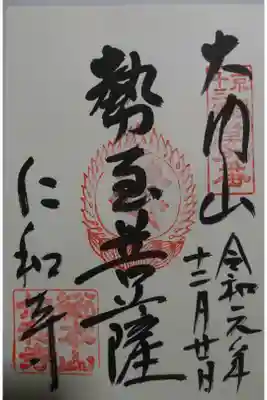 大内山
令和元年
十二月廿日
勢至菩薩
仁和寺